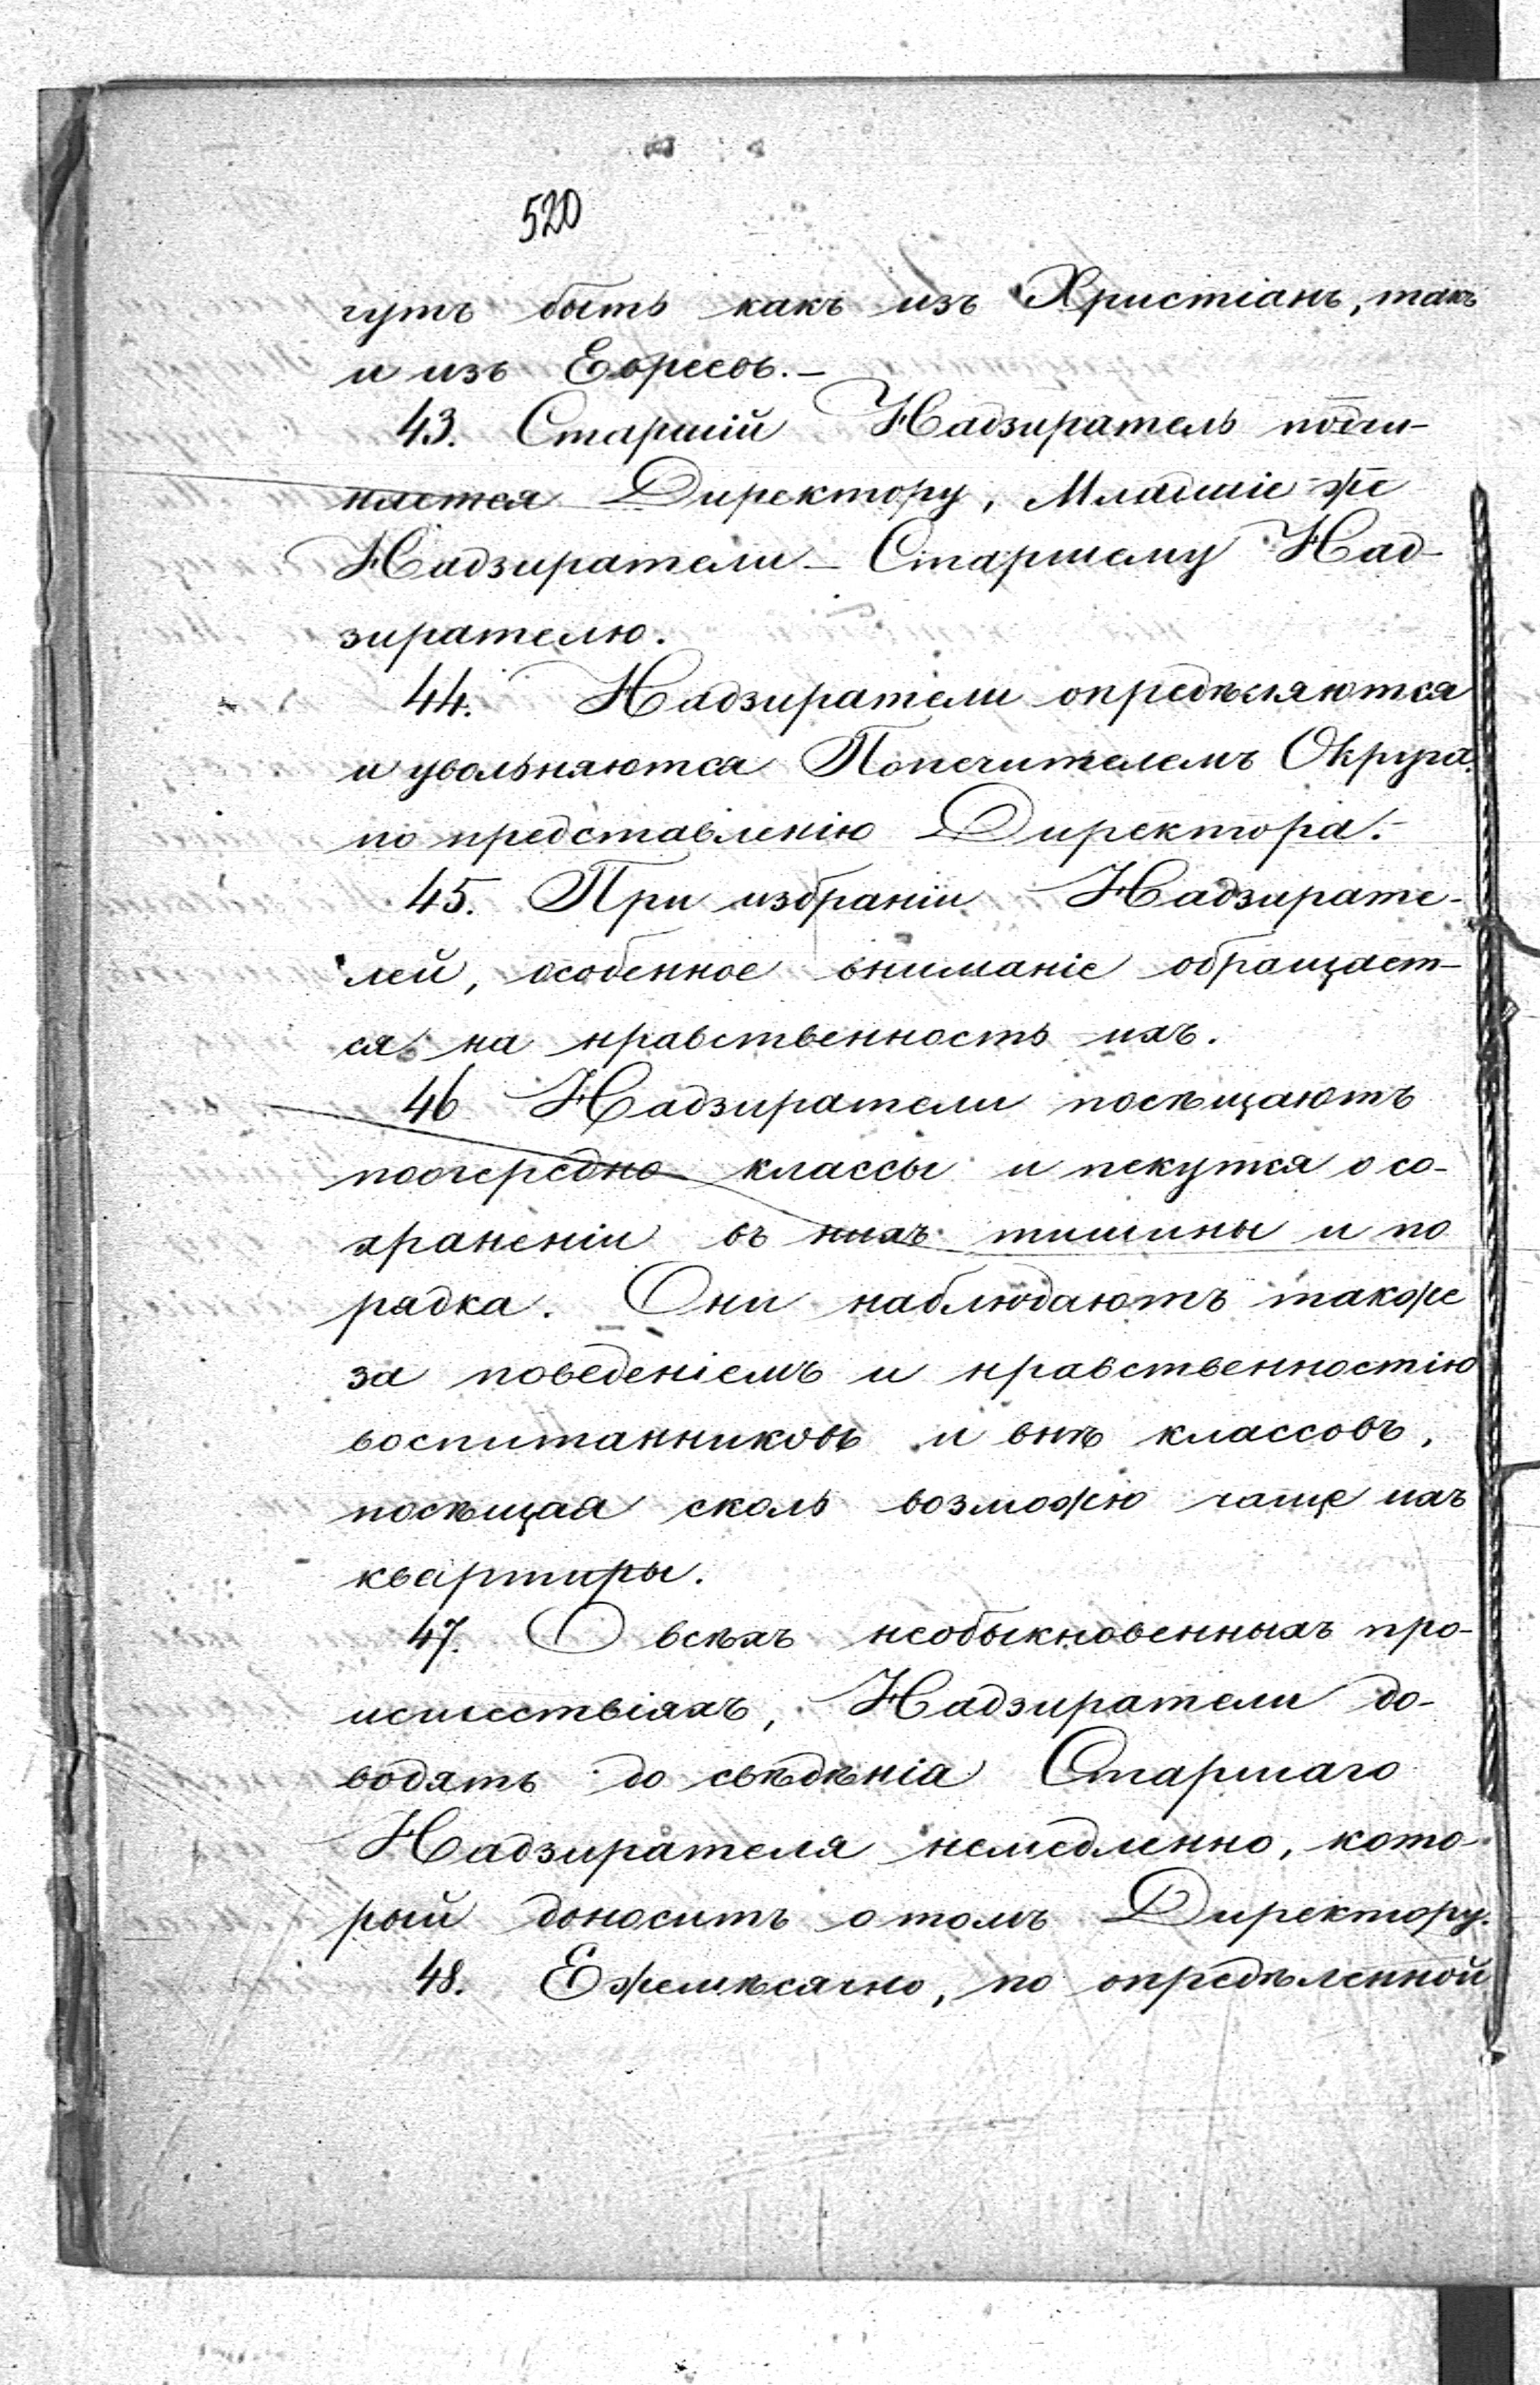 520
гутъ быть какъ изъ Христіанъ, такъ
и изъ Евреевъ.—
43. Старшій Надзиратель подчи-
няется Директору, Младшіе же
Надзиратели — Старшему Над-
зирателю.
44. Надзиратели опредѣляются
и увольняются Попечителемъ Округа,
по представленію Директора.—
45. При избраніи Надзирате-
лей, особенное вниманіе обращает-
ся на нравственность ихъ.
46 Надзиратели посѣщаютъ
поочередно классы и пекутся о со-
храненіи въ нихъ тишины и по
рядка. Они наблюдаютъ также
за поведеніемъ и нравственностію
воспитанниковъ и внѣ классовъ,
посѣщая сколь возможно чаще ихъ
квартиры.
47. О всѣхъ необыкновенныхъ про-
исшествіяхъ, Надзиратели до-
водятъ до свѣдѣнія Старшаго
Надзирателя немедленно, кото-
рый доноситъ о томъ Директору.
48. Ежемѣсячно, по опредѣленной